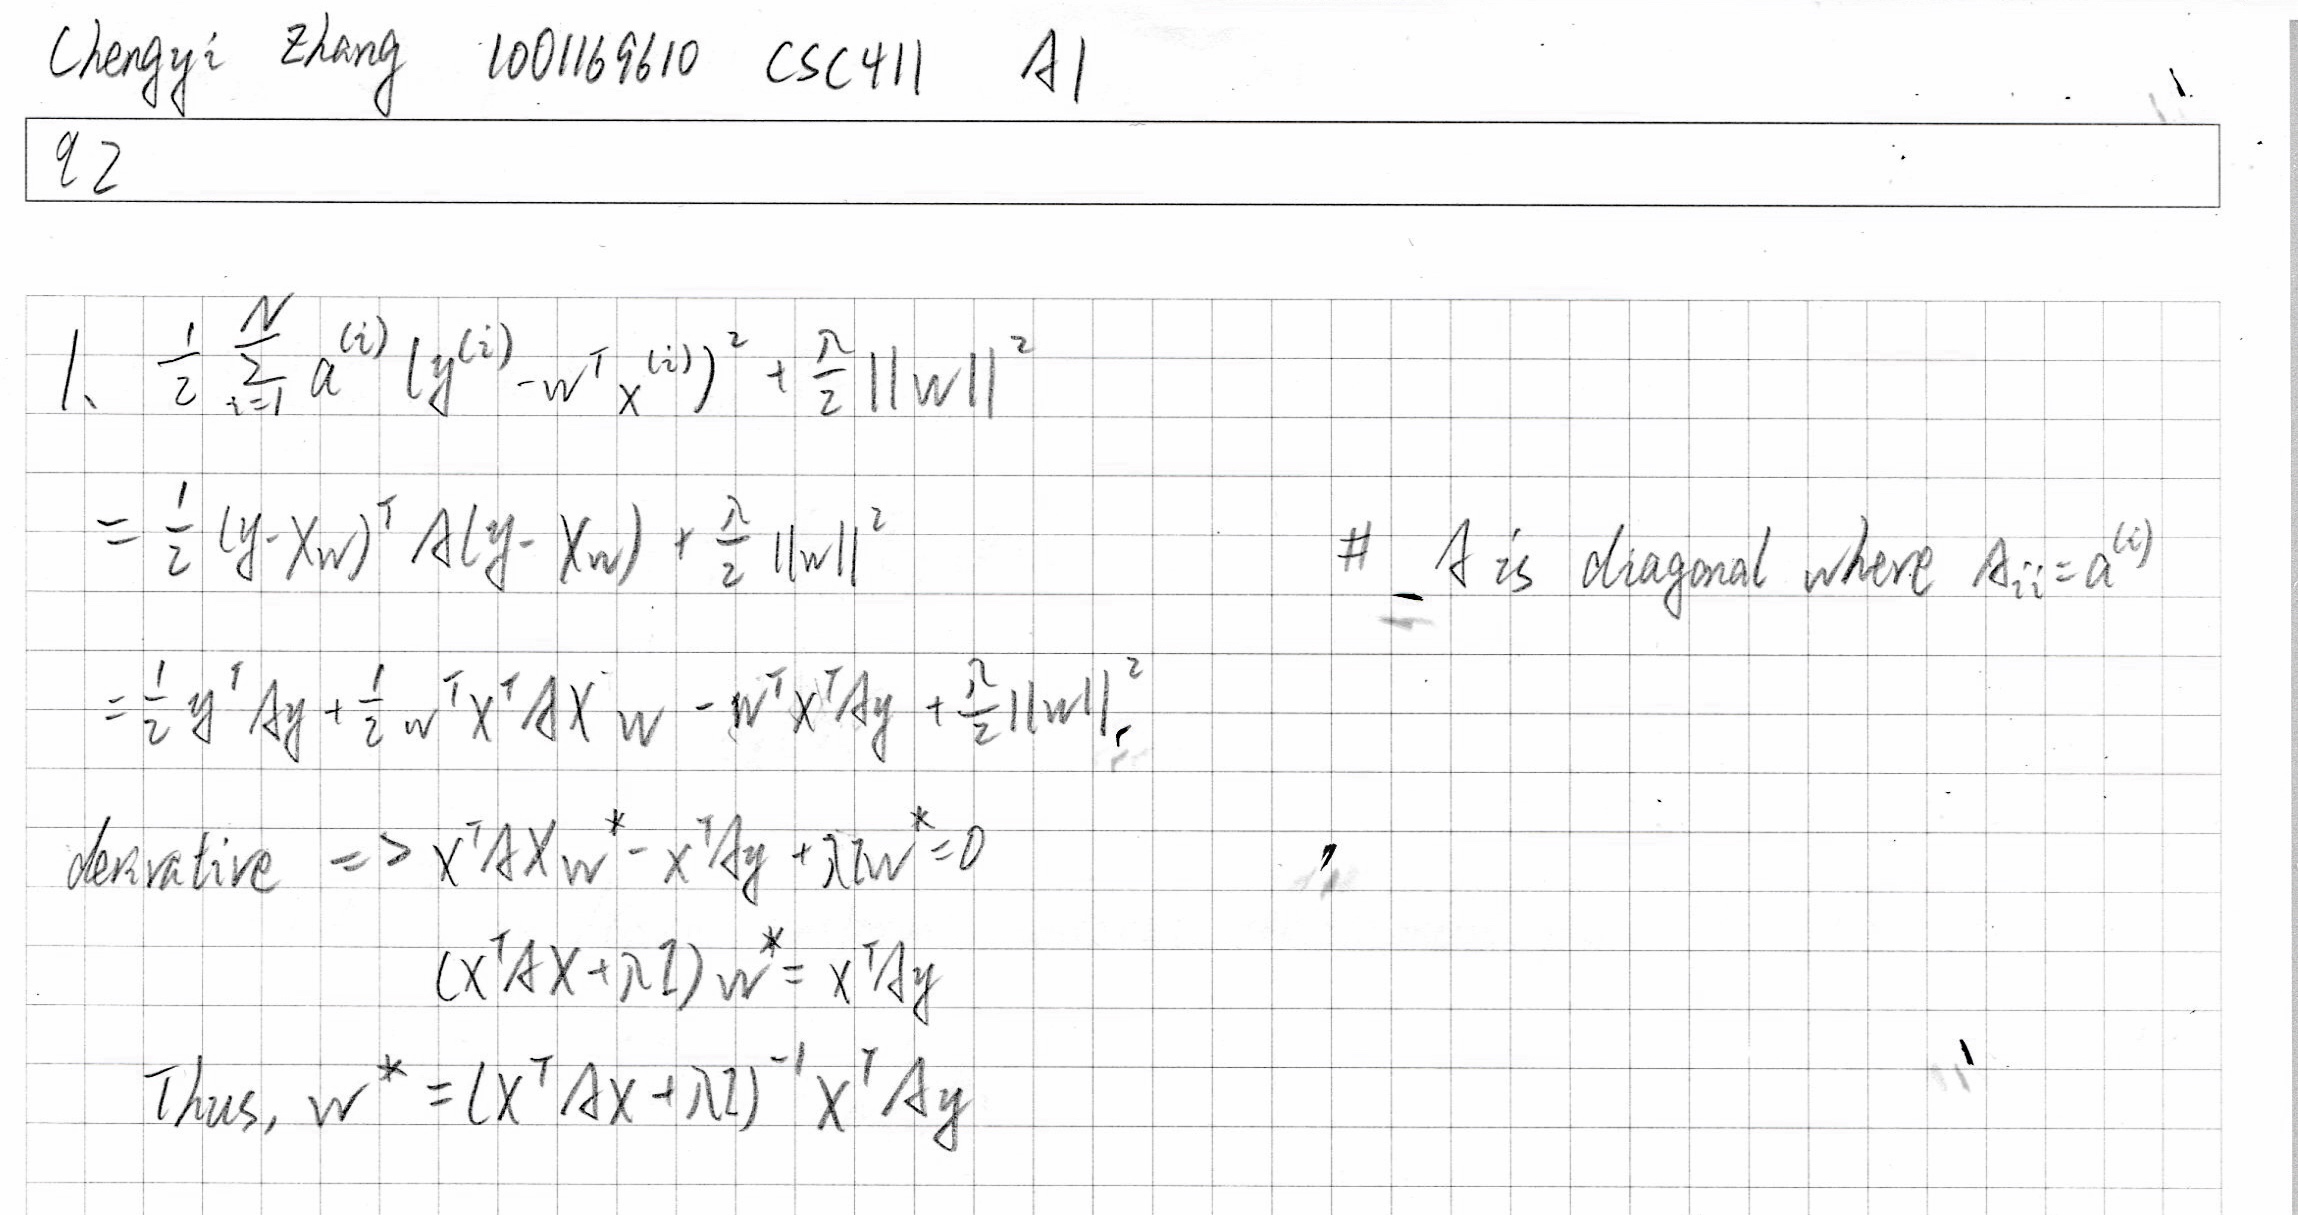 Chengyi Zhang 1001169610 CSC411 A1
q2
1. 1/2 Σ_{i=1}^{N} a^{(i)} (y^{(i)} - w^T x^{(i)})^2 + λ/2 ||w||^2
= 1/2 (y-Xw)^T A(y-Xw) + λ/2 ||w||^2 # A is diagonal where A_{ii}=a^{(i)}
= 1/2 y^T Ay + 1/2 w^T X^T AX w - w^T X^T Ay + λ/2 ||w||^2
derivative => X^T AXw^* - X^T Ay + λIw^* = 0
(X^T AX+λI) w^* = X^T Ay
Thus, w^* = (X^T AX+λI)^{-1} X^T Ay